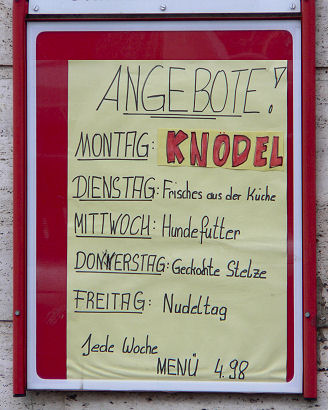 ANGEBOTE!
MONTAG: KNÖDEL
DIENSTAG: Frisches aus der Küche
MITTWOCH: Hundefutter
DONNERSTAG: Geckochte Stelze
FREITAG: Nudeltag
Jede Woche
MENÜ 4.98